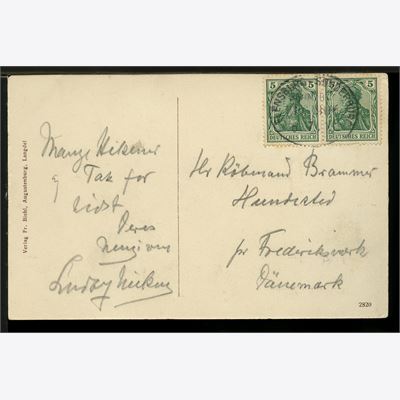 5 5 5
DEUTSCHES REICH DEUTSCHES REICH
Mange Hilsener
og Tak for
sidst
Deres
Hr Købmand Brammer
Hundested
pr Frederiksværk
Dänemark
Verlag Fr. Biehl, Augustenburg, Langdel
2820